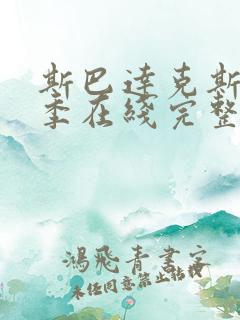 斯巴达克斯
季在线完整
鸿飞青书客
未经同意禁止转载